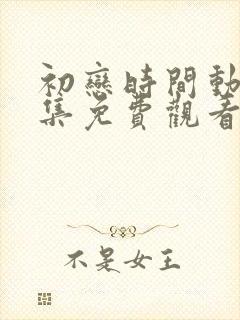 初戀時間動
集免費觀看
不是女王